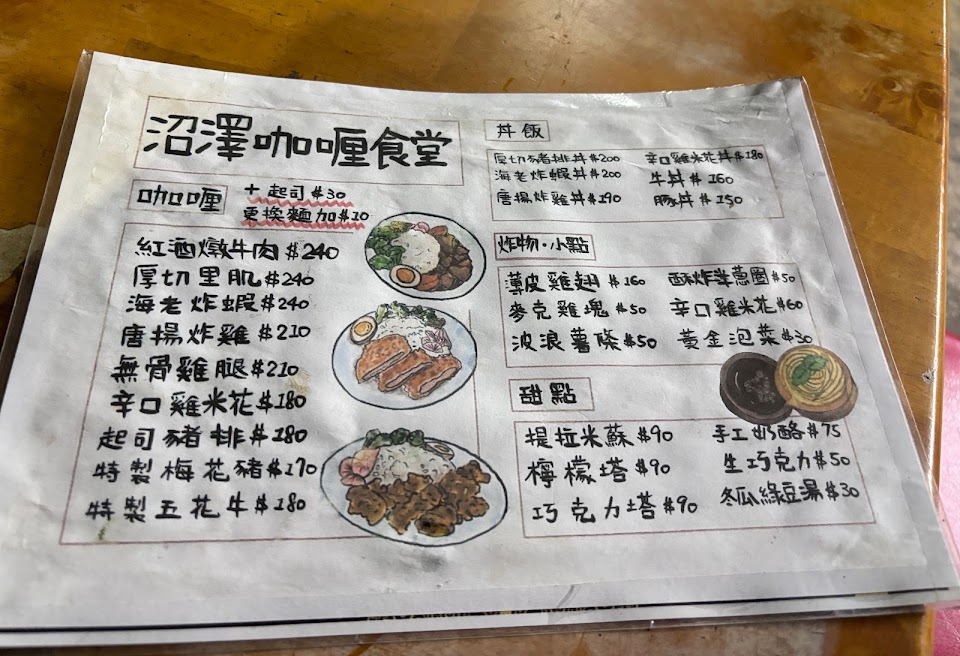 沼澤咖喱食堂
咖喱
+ 起司$30
更換麵加$10
紅酒燉牛肉 $240
厚切里肌 $240
海老炸蝦 $240
唐揚炸雞 $210
無骨雞腿 $210
辛口雞米花 $180
起司豬排 $180
特製梅花豬 $170
特製五花牛 $180
丼飯
厚切豬排丼 $200
海老炸蝦丼 $200
唐揚炸雞丼 $190
辛口雞米花丼 $180
牛丼 $160
豚丼 $150
炸物·小點
薄皮雞翅 $160
麥克雞塊 $50
波浪薯條 $50
酥炸洋蔥圈 $50
辛口雞米花 $60
黃金泡菜 $30
甜點
提拉米蘇 $90
檸檬塔 $90
巧克力塔 $90
手工奶酪 $75
生巧克力 $50
冬瓜綠豆湯 $30